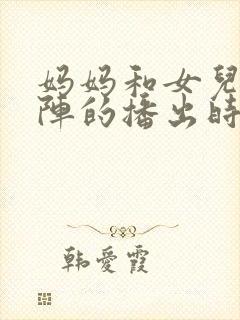 妈妈和女兒
陣的播出時
韩愛霞